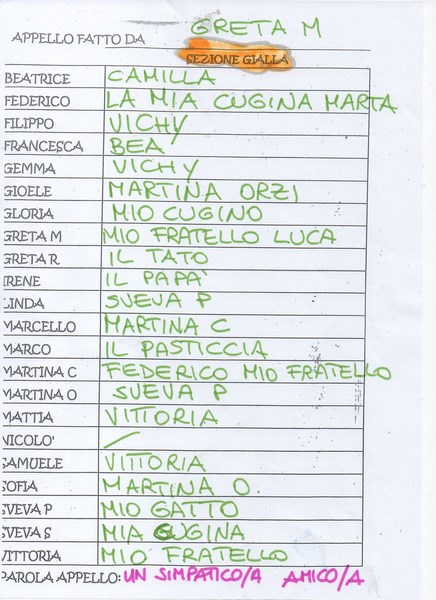 APPELLO FATTO DA GRETA M
SEZIONE GIALLA
BEATRICE CAMILLA
FEDERICO LA MIA CUGINA MARTA
FILIPPO VICHY
FRANCESCA BEA
GEMMA VICHY
GIOELE MARTINA ORZI
GLORIA MIO CUGINO
GRETA M MIO FRATELLO LUCA
GRETA R IL TATO
IRENE IL PAPA'
LINDA SVEVA P
MARCELLO MARTINA C
MARCO IL PASTICCIA
MARTINA C FEDERICO MIO FRATELLO
MARTINA O SVEVA P
MATTIA VITTORIA
NICOLO' /
SAMUELE VITTORIA
SOFIA MARTINA O.
SVEVA P MIO GATTO
SVEVA S MIA CUGINA
VITTORIA MIO FRATELLO
PAROLA APPELLO: UN SIMPATICO/A AMICO/A